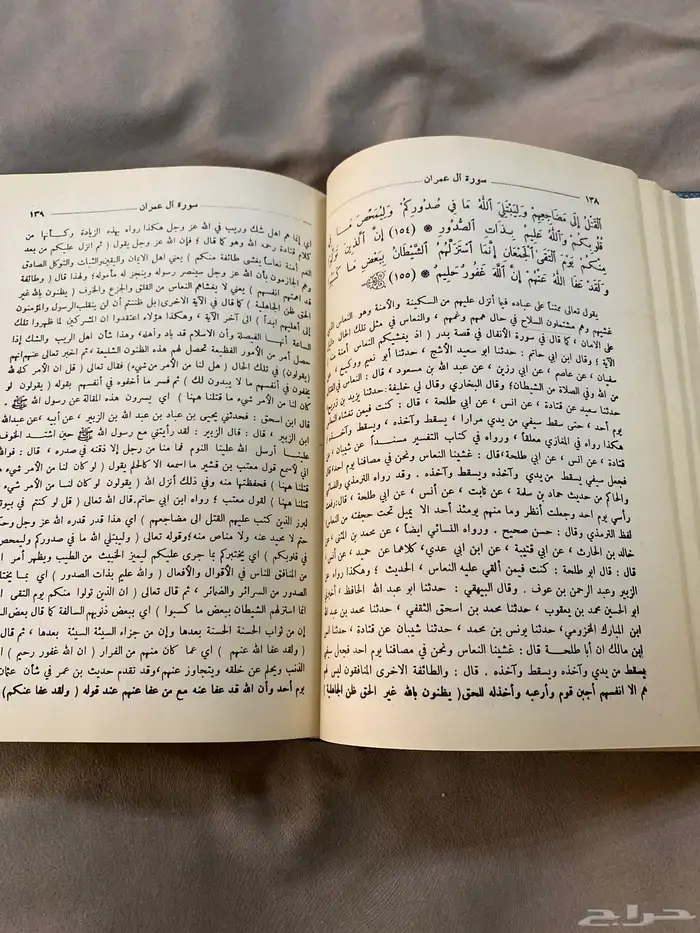 ١٣٨
سورة آل عمران
الْقَتْلُ إِلَى مَضَاجِعِهِمْ وَلِيَبْتَلِيَ اللَّهُ مَا فِي صُدُورِكُمْ وَلِيُمَحِّصَ مَا فِي
قُلُوبِكُمْ وَاللَّهُ عَلِيمٌ بِذَاتِ الصُّدُورِ (١٥٤) إِنَّ الَّذِينَ تَوَلَّوْا
مِنكُمْ يَوْمَ الْتَقَى الْجَمْعَانِ إِنَّمَا اسْتَزَلَّهُمُ الشَّيْطَانُ بِبَعْضِ مَا كَسَبُوا
وَلَقَدْ عَفَا اللَّهُ عَنْهُمْ إِنَّ اللَّهَ غَفُورٌ حَلِيمٌ (١٥٥)
يقول تعالى ممتناً على عباده فيما أنزل عليهم من السكينة والأمنة وهو النعاس الذي
غشيهم وهم مشتملون السلاح في حال همهم وغمهم ، والنعاس في مثل تلك الحال دليل
على الامان ، كما قال في سورة الأنفال في قصة بدر ( اذ يغشيكم النعاس أمنة منه )
الآية ؛ وقال ابن أبي حاتم : حدثنا ابو سعيد الأشج ، حدثنا أبو نعيم ووكيع ، عن
سفيان ، عن عاصم ، عن أبي رزين ، عن عبد الله بن مسعود ، قال : النعاس في القتال
من الله وفي الصلاة من الشيطان؛ وقال البخاري وقال لي خليفة:حدثنا يزيد بن زريع
حدثنا سعيد عن قتادة ، عن انس ، عن ابي طلحة ، قال : كنت فيمن تغشاه النعاس
يوم أحد ، حتى سقط سيفي من يدي مرارا ، يسقط وآخذه ، ويسقط وآخذه
هكذا رواه في المغازي معلقاً ، ورواه في كتاب التفسير مسنداً عن شيبان ، عن
قتادة ، عن انس ، عن ابي طلحة،قال : غشينا النعاس ونحن في مصافنا يوم احد،قال
فجعل سيفي يسقط من يدي وآخذه ويسقط وآخذه . وقد رواه الترمذي والنسائي
والحاكم من حديث حماد بن سلمة ، عن ثابت ، عن أنس ، عن ابي طلحة ، قال:رفعت
رأسي يوم احد وجعلت أنظر وما منهم يومئذ أحد الا يميل تحت حجفته من النعاس
لفظ الترمذي وقال : حسن صحيح . ورواه النسائي ايضاً ، عن محمد بن المثنى ، عن
خالد بن الحارث ، عن ابي قتيبة ، عن ابن ابي عدي، كلاهما عن حميد ، عن أنس
قال : قال ابو طلحة : كنت فيمن ألقي عليه النعاس ، الحديث ؛ وهكذا رواه عن
الزبير وعبد الرحمن بن عوف . وقال البيهقي : حدثنا ابو عبد الله الحافظ ، أخبرني
ابو الحسين محمد بن يعقوب ، حدثنا محمد بن اسحق الثقفي ، حدثنا محمد بن عبد الله
ابن المبارك المخزومي، حدثنا يونس بن محمد ، حدثنا شيبان عن قتادة ، حدثنا أنس
ابن مالك ان أبا طلحة قال : غشينا النعاس ونحن في مصافنا يوم احد فجعل سيفي
يسقط من يدي وآخذه ويسقط وآخذه . قال : والطائفة الاخرى المنافقون ليس لهم
هم الا انفسهم أجبن قوم وأرعبه وأخذله للحق( يظنون بالله غير الحق ظن الجاهلية )
سورة آل عمران
١٣٩
اي إنما هم اهل شك وريب في الله عز وجل هكذا رواه بهذه الزيادة وكأنها من
كلام قتادة رحمه الله وهو كما قال ؛ فإن الله عز وجل يقول ( ثم انزل عليكم من بعد
الغم أمنة نعاساً يغشى طائفة منكم ) يعني اهل الايمان واليقين والثبات والتوكل الصادق
وهم الجازمون بأن الله عز وجل سينصر رسوله وينجز له مأموله؛ ولهذا قال ( وطائفة
قد اهمتهم انفسهم ) يعني لا يغشاهم النعاس من القلق والجزع والخوف ( يظنون بالله غير
الحق ظن الجاهلية ) كما قال في الآية الأخرى(بل ظننتم أن لن ينقلب الرسول والمؤمنون
إلى أهليهم ابداً ) الى آخر الآية ، وهكذا هؤلاء اعتقدوا ان المشركين لما ظهروا تلك
الساعة أنها الفيصلة وأن الاسلام قد باد وأهله؛ وهذا شأن اهل الريب والشك إذا
حصل أمر من الأمور الفظيعة تحصل لهم هذه الظنون الشنيعة ، ثم اخبر تعالى عنهم انهم
(يقولون) في تلك الحال ( هل لنا من الأمر من شيء) فقال تعالى ( قل ان الأمر كله لله
يخفون في أنفسهم ما لا يبدون لك ) ثم فسر ما أخفوه في أنفسهم بقوله ( يقولون لو
كان لنا من الأمر شيء ما قتلنا ههنا ) اي يسرون هذه المقالة عن رسول الله ﷺ .
قال ابن اسحق : فحدثني يحيى بن عباد بن عبد الله بن الزبير ، عن أبيه ، عن عبدالله
ابن الزبير ، قال : قال الزبير : لقد رأيتني مع رسول الله ﷺ حين اشتد الخوف
علينا أرسل الله علينا النوم فما منا من رجل إلا ذقنه في صدره ، قال: فوالله
اني لأسمع قول معتب بن قشير ما اسمعه الا كالحلم يقول ( لو كان لنا من الأمر شيء ما
قتلنا ههنا ) فحفظتها منه وفي ذلك أنزل الله ( يقولون لو كان لنا من الأمر شيء ما
قتلنا ههنا ) لقول معتب ؛ رواه ابن ابي حاتم.قال الله تعالى ( قل لو كنتم في بيوتكم
لبرز الذين كتب عليهم القتل الى مضاجعهم ) اي هذا قدر قدره الله عز وجل وحكم
حتم لا يحيد عنه ولا مناص منه؛ وقوله تعالى ( وليبتلي الله ما في صدوركم وليمحص ما
في قلوبكم ) اي يختبركم بما جرى عليكم ليميز الخبيث من الطيب ويظهر أمر
من المنافق للناس في الأقوال والأفعال ( والله عليم بذات الصدور ) اي بما يختلج في
الصدور من السرائر والضمائر ، ثم قال تعالى ( ان الذين تولوا منكم يوم التقى الجمعان
انما استزلهم الشيطان ببعض ما كسبوا ) اي ببعض ذنوبهم السالفة كما قال بعض السلف:
إن من ثواب الحسنة الحسنة بعدها وإن من جزاء السيئة السيئة بعدها ، ثم قال
( ولقد عفا الله عنهم ) اي عما كان منهم من الفرار ( ان الله غفور رحيم ) اي
الذنب ويحلم عن خلقه ويتجاوز عنهم،وقد تقدم حديث بن عمر في شأن عثمان
يوم أحد وأن الله قد عفا عنه مع من عفا عنهم عند قوله ( ولقد عفا عنكم)
حراج